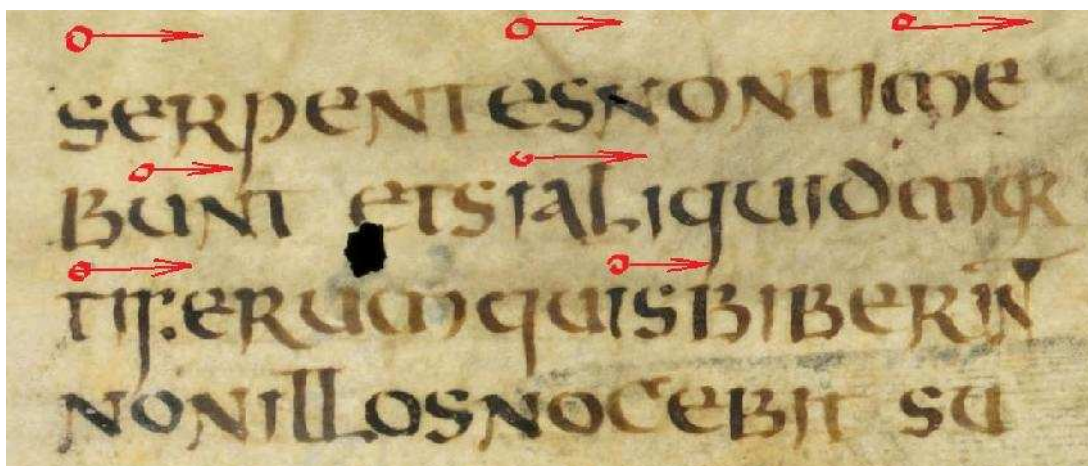 SERPENTESNONTIME
BUNT ETSIALIQUIDMOR
TIFERUMQUISBIBERINT
NONILLOSNOCEBIT SU